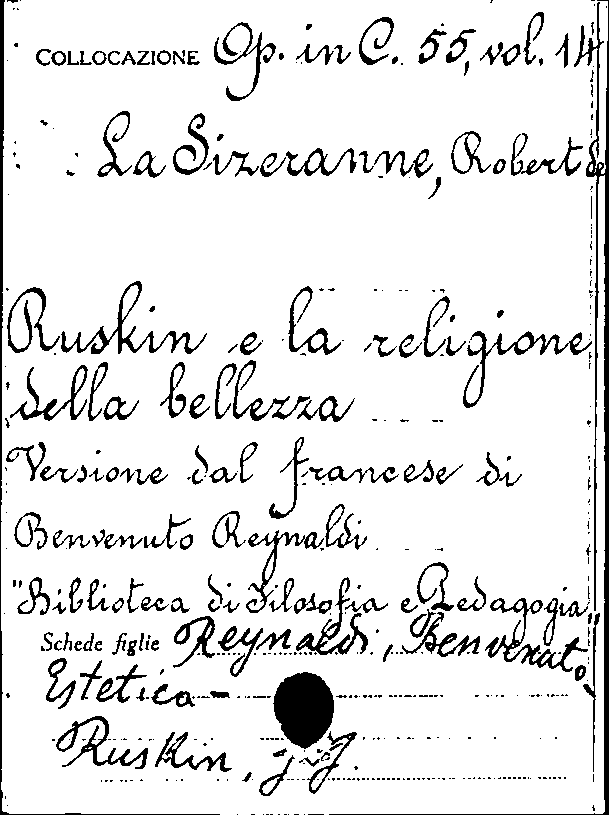 COLLOCAZIONE Op. in C. 55, vol. 14
La Sizeranne, Robert de
Ruskin e la religione
della bellezza
Versione dal francese di
Benvenuto Reynaldi
"Biblioteca di Filosofia e Pedagogia"
Schede figlie Reynaldi, Benvenuto
Estetica -
Ruskin, J.